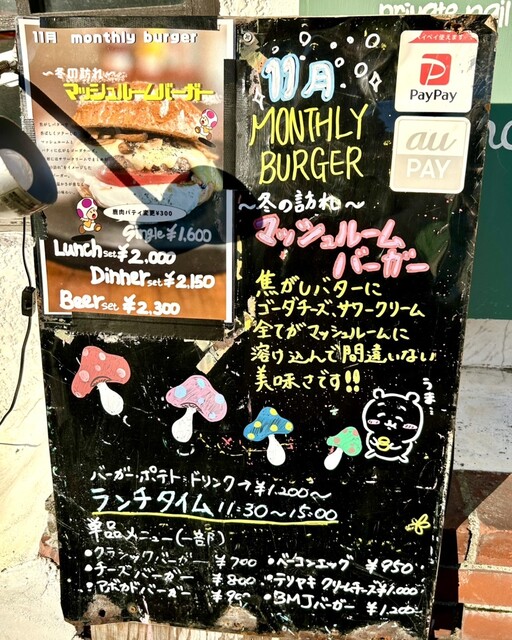 private nail
11月 monthly burger
~冬の訪れ~
マッシュルームバーガー
鹿肉パティ変更¥300
Single¥1.600
Lunch set ¥2.000
Dinner set ¥2.150
Beer set ¥2.300
11月
MONTHLY
BURGER
~冬の訪れ~
マッシュルーム
バーガー
焦がしバターに
ゴーダチーズ、サワークリーム
全てがマッシュルームに
溶け込んで間違いない
美味さです!!
PayPay
au
PAY
うま
バーガー・ポテト・ドリンク→¥1.200~
ランチタイム 11:30~15:00
単品メニュー(一部)
・クラシックバーガー ¥700
・チーズバーガー ¥800
・アボカドバーガー
・ベーコンエッグ ¥950
・テリヤキクリームチーズ ¥1.000
・BMJバーガー ¥1.200